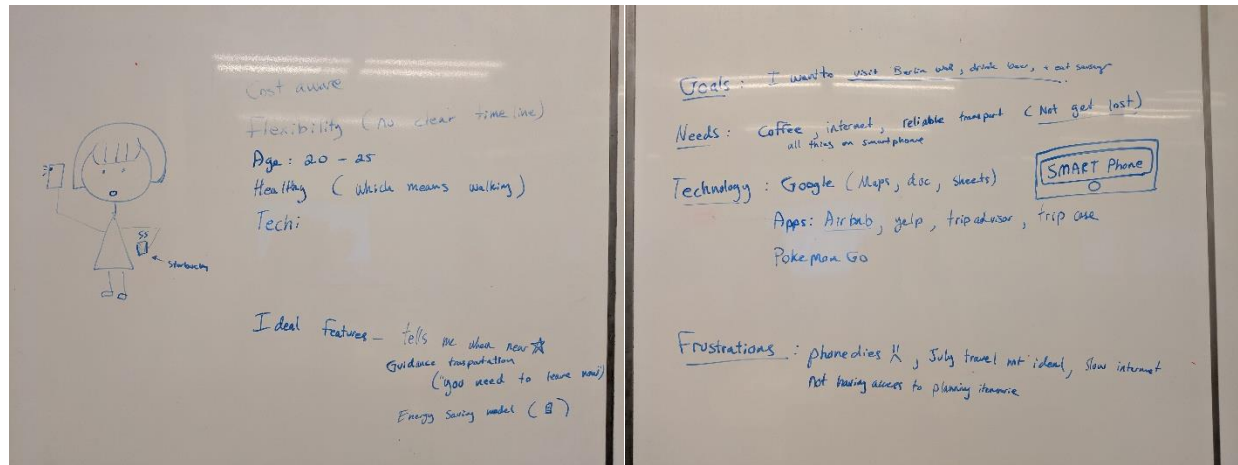 Cost aware
Flexibility (No clear timeline)
Age: 20 - 25
Healthy (which means walking)
Techi
SS
Starbucks
Ideal features - tells me when near ☆
Guidance trasportation
("you need to leave now")
Energy Saving model ( )
Goals: I want to visit Berlin wall, drink beer, + eat sausage
Needs: Coffee, internet, reliable transport (Not get lost)
all things on smartphone
Technology: Google (Maps, doc, sheets)
SMART Phone
Apps: Airbnb, yelp, tripadvisor, trip case
Pokemon Go
Frustrations: phone dies, July travel not ideal, slow internet
Not having access to planning